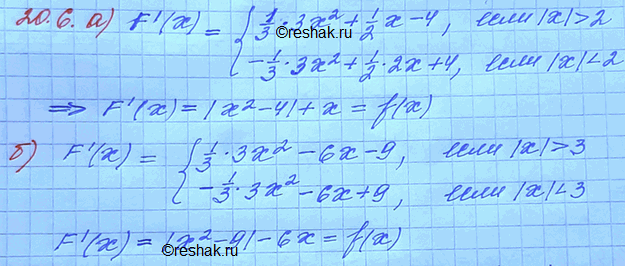 20.6. а) F'(x) = { 1/3 · 3x² + 1/2 x - 4, если |x| > 2
- 1/3 · 3x² + 1/2 · 2x + 4, если |x| < 2
©reshak.ru
⇒ F'(x) = |x² - 4| + x = f(x)
б) F'(x) = { 1/3 · 3x² - 6x - 9, если |x| > 3
- 1/3 · 3x² - 6x + 9, если |x| < 3
F'(x) = |x² - 9| - 6x = f(x)
©reshak.ru